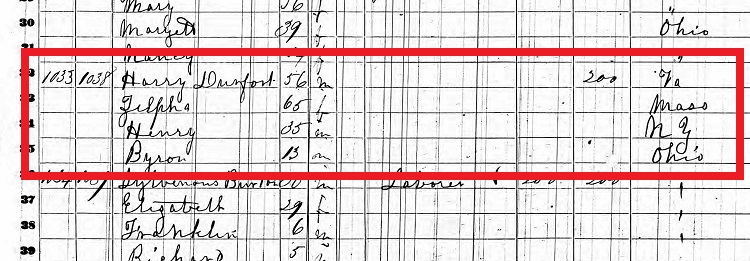 Mary 36 f
30 Margett 39 f Ohio
31 Nancy f "
1033 1038 Harry Dunfost 56 m 200 Va
Zilpha 65 f Mass
Henry 35 m N Y
Byron 13 m Ohio
Laborer 200 200 "
37 Elizabeth 29 f "
38 Franklin 6 m "
39 Richard 5 m